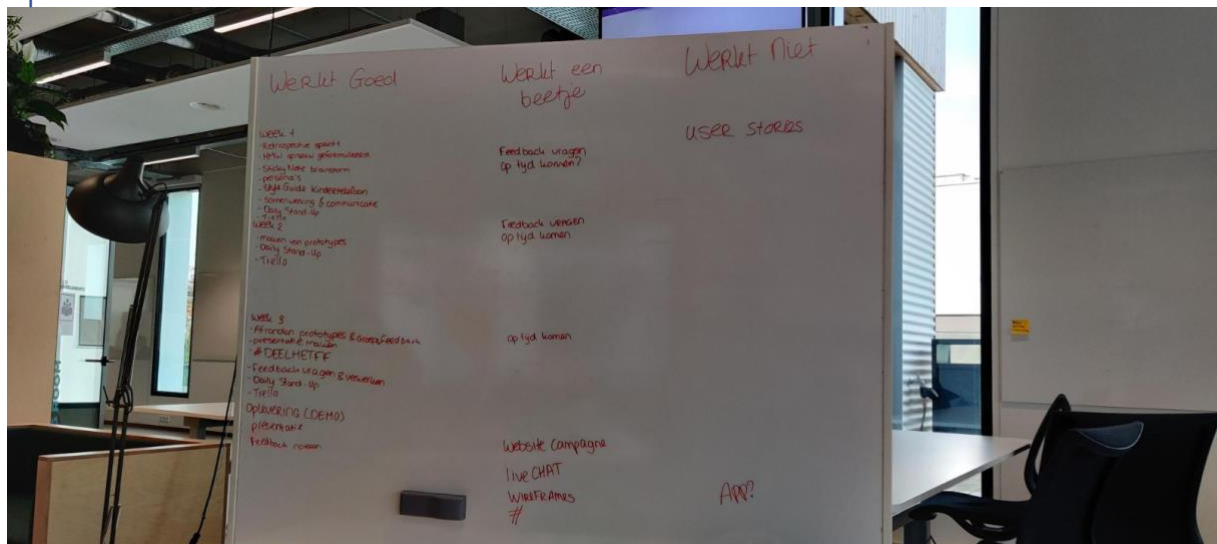 Werkt Goed
Week 1
- Retrospective opzet
- HMW opnieuw geformuleerd
- Sticky Note brainstorm
- persona's
- Style Guide Kindertelefoon
- Samenwerking & communicatie
- Daily Stand-Up
- Trello
Week 2
- maken van prototypes
- Daily Stand-Up
- Trello
Week 3
- Afronden prototypes & Groepsfeedback
- presentatie maken
- #DEELHETFF
- Feedback vragen & verwerken
- Daily Stand-Up
- Trello
Oplevering (DEMO)
presentatie
Feedback
Werkt een
beetje
Feedback vragen
op tijd komen?
Feedback vragen
op tijd komen
op tijd komen
Website Campagne
live CHAT
WIREFRAMES
#
Werkt Niet
USER STORIES
App?